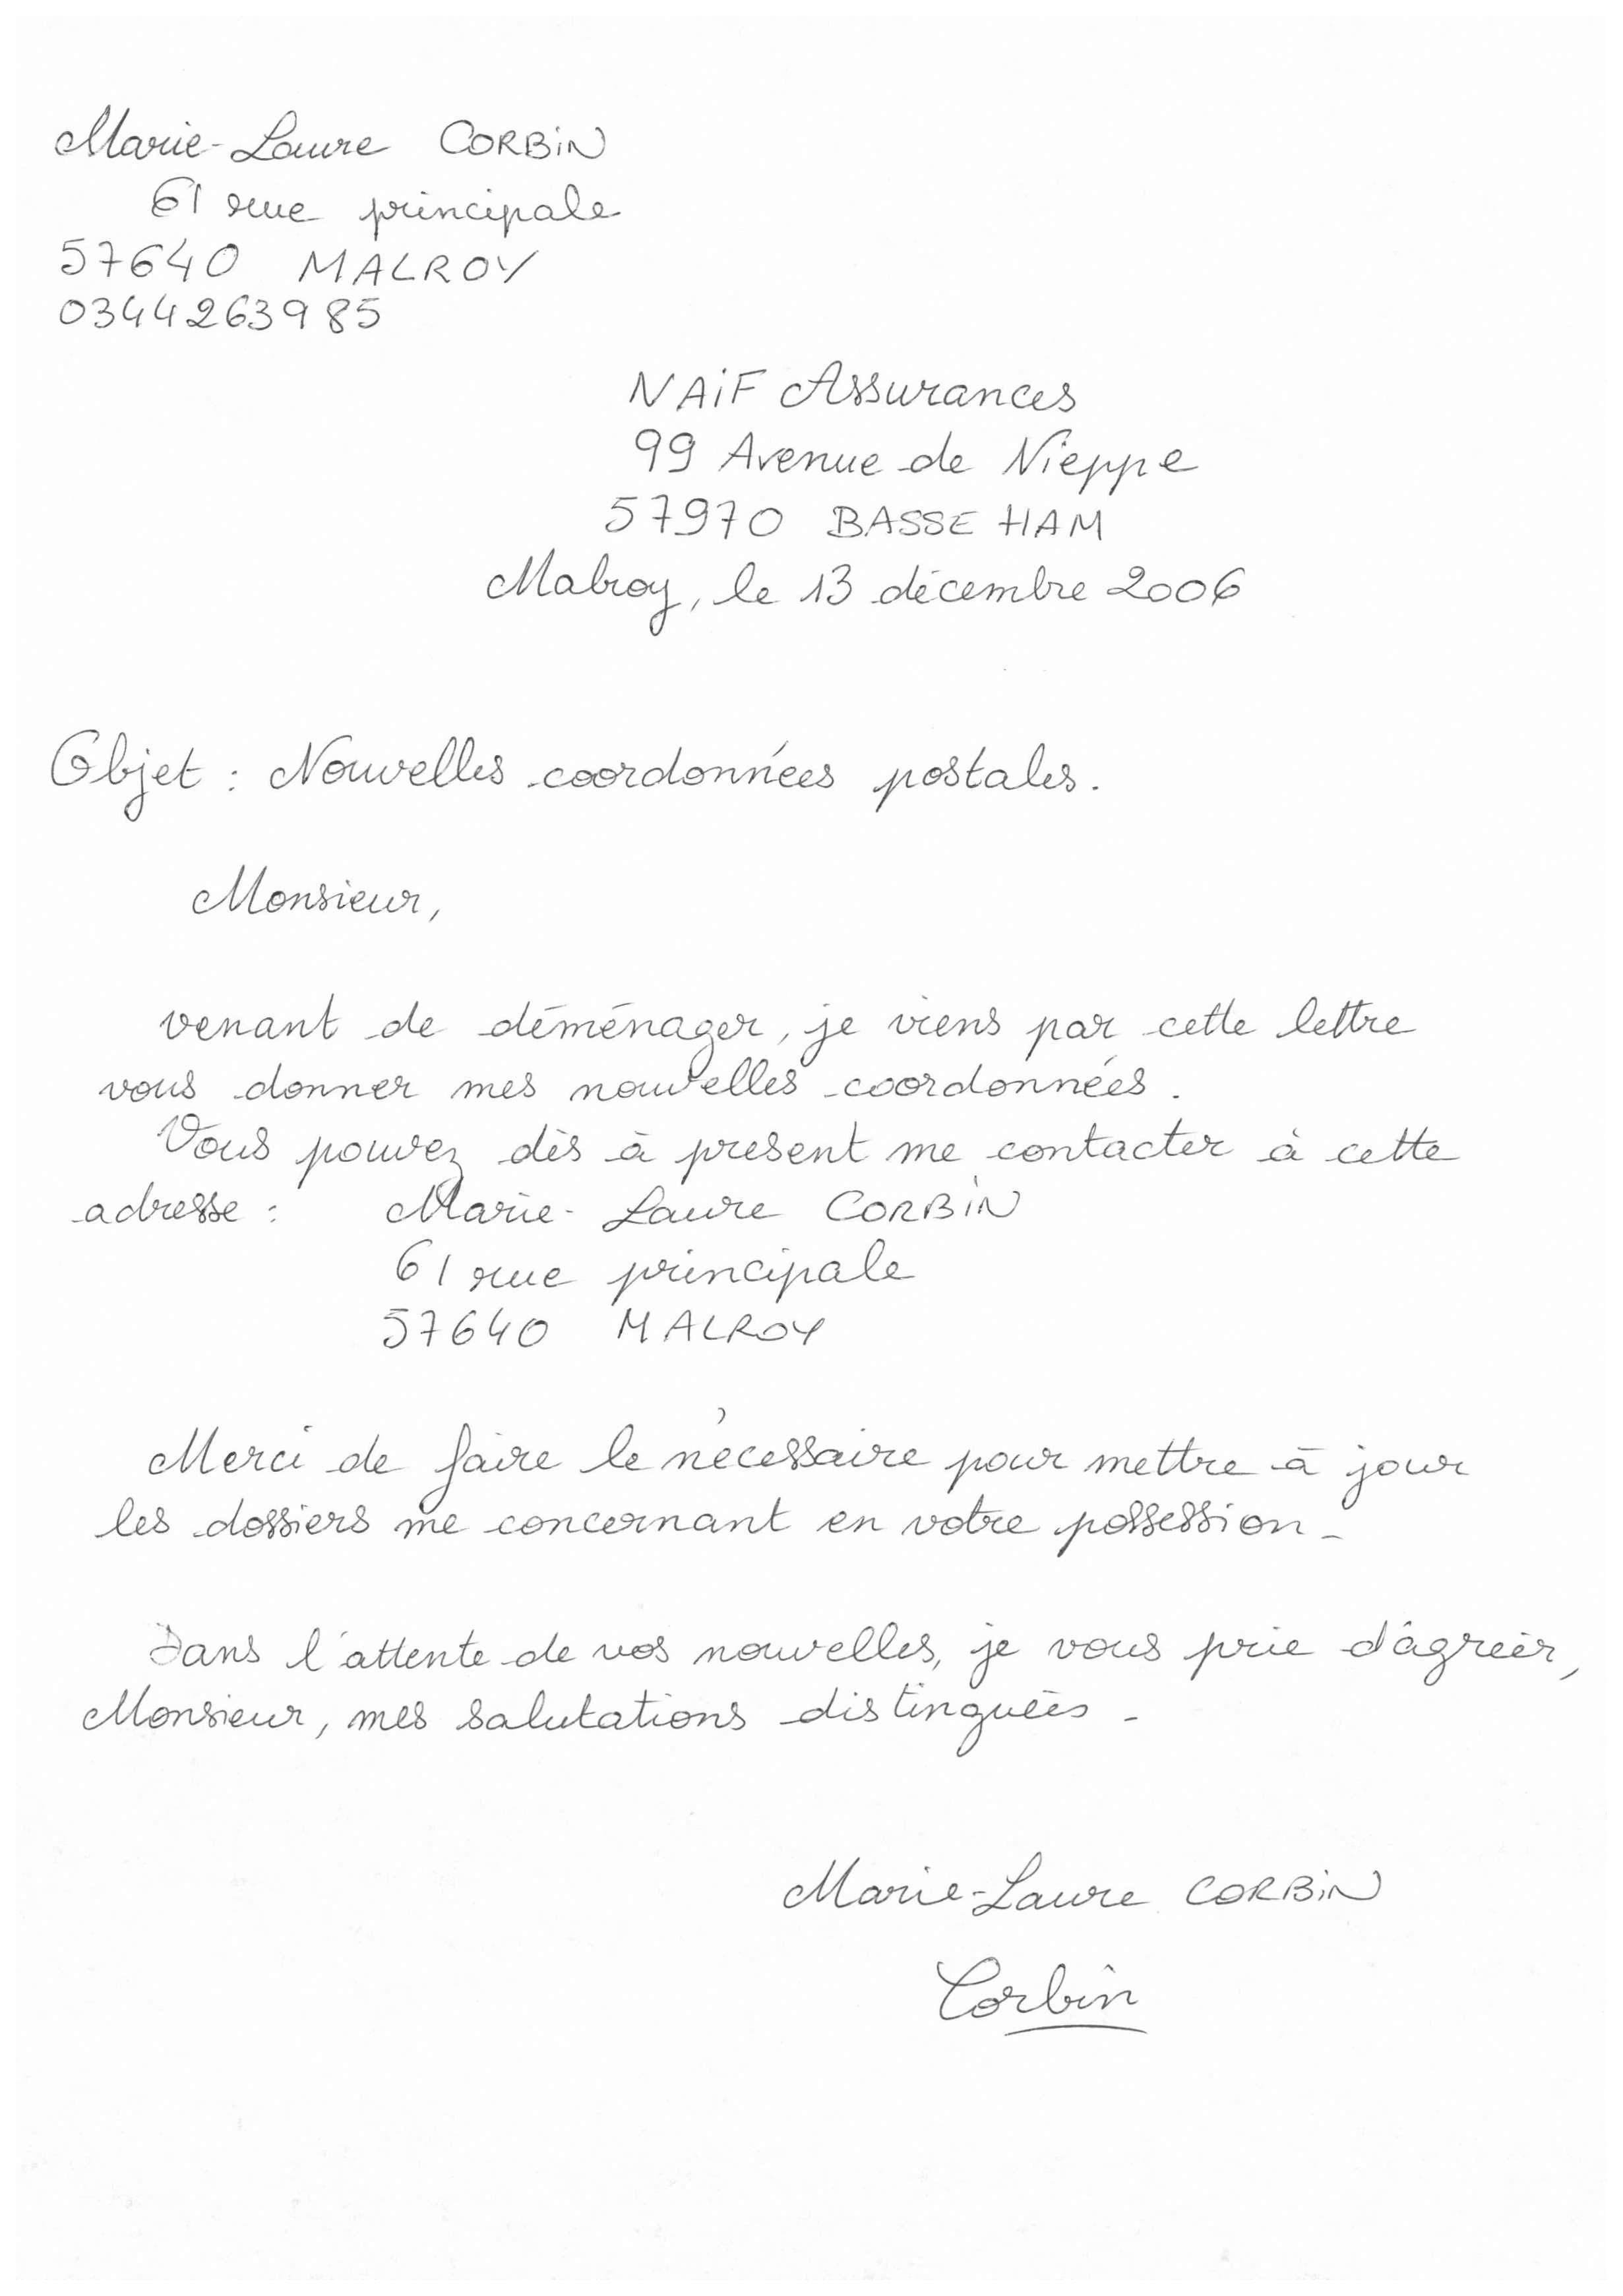 Marie-Laure CORBIN
61 rue principale
57640 MALROY
0344263985
NAIF Assurances
99 Avenue de Nieppe
57970 BASSE HAM
Malroy, le 13 décembre 2006
Objet : Nouvelles coordonnées postales.
Monsieur,
venant de déménager, je viens par cette lettre
vous donner mes nouvelles coordonnées.
Vous pouvez dès à present me contacter à cette
adresse : Marie-Laure CORBIN
61 rue principale
57640 MALROY
Merci de faire le nécessaire pour mettre à jour
les dossiers me concernant en votre possession -
Dans l'attente de vos nouvelles, je vous prie d'agréer,
Monsieur, mes salutations distinguées -
Marie-Laure CORBIN
Corbin